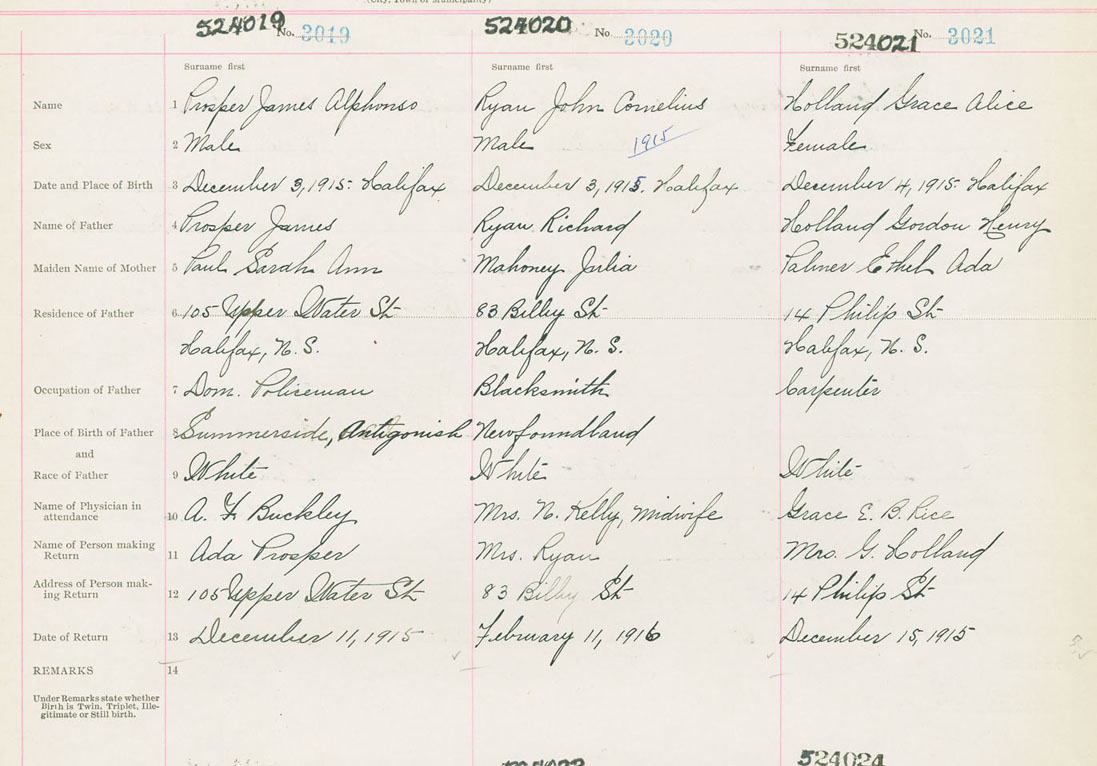 (City, Town or Municipality)
524019 No. 3019 524020 No. 3020 524021 No. 3021
Surname first Surname first Surname first
Name 1 Prosper James Alphonso Ryan John Cornelius Holland Grace Alice
Sex 2 Male Male 1915 Female
Date and Place of Birth 3 December 3, 1915. Halifax December 3, 1915. Halifax December 4, 1915. Halifax
Name of Father 4 Prosper James Ryan Richard Holland Gordon Henry
Maiden Name of Mother 5 Paul Sarah Ann Mahoney Julia Palmer Ethel Ada
Residence of Father 6 105 Upper Water St 83 Bilby St 14 Philip St
Halifax, N.S. Halifax, N.S. Halifax, N.S.
Occupation of Father 7 Dom. Policeman Blacksmith Carpenter
Place of Birth of Father 8 Summerside, Antigonish Newfoundland
and
Race of Father 9 White White White
Name of Physician in
attendance 10 A. F. Buckley Mrs. N. Kelly, Midwife Grace E. B. Rice
Name of Person making
Return 11 Ada Prosper Mrs. Ryan Mrs. G. Holland
Address of Person mak-
ing Return 12 105 Upper Water St 83 Bilby St 14 Philip St
Date of Return 13 December 11, 1915 February 11, 1916 December 15, 1915
REMARKS 14
Under Remarks state whether
Birth is Twin, Triplet, Ille-
gitimate or Still birth.
524024